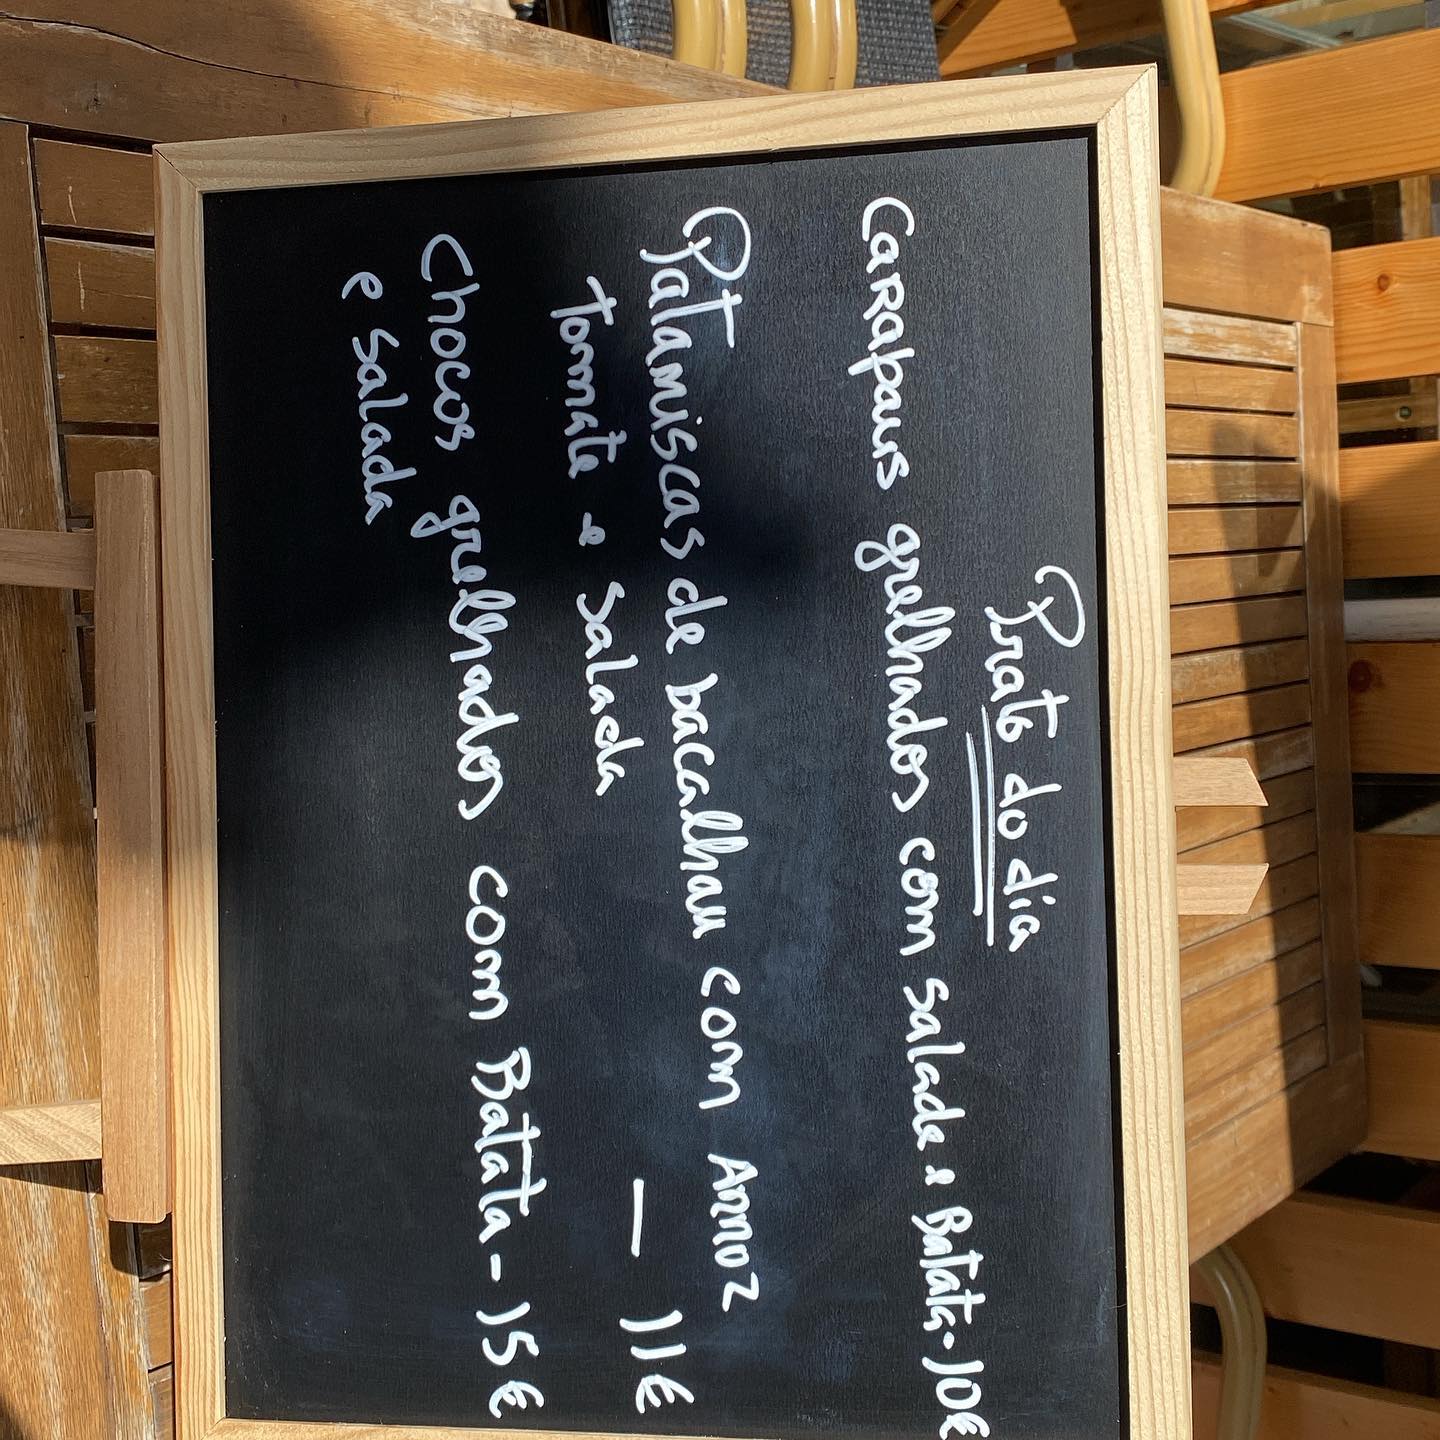 Prato do dia
Carapaus grelhados com salada e Batata - 10€
Pataniscas de bacalhau com Arroz
tomate e salada - 11€
Chocos grelhados com Batata - 15€
e salada